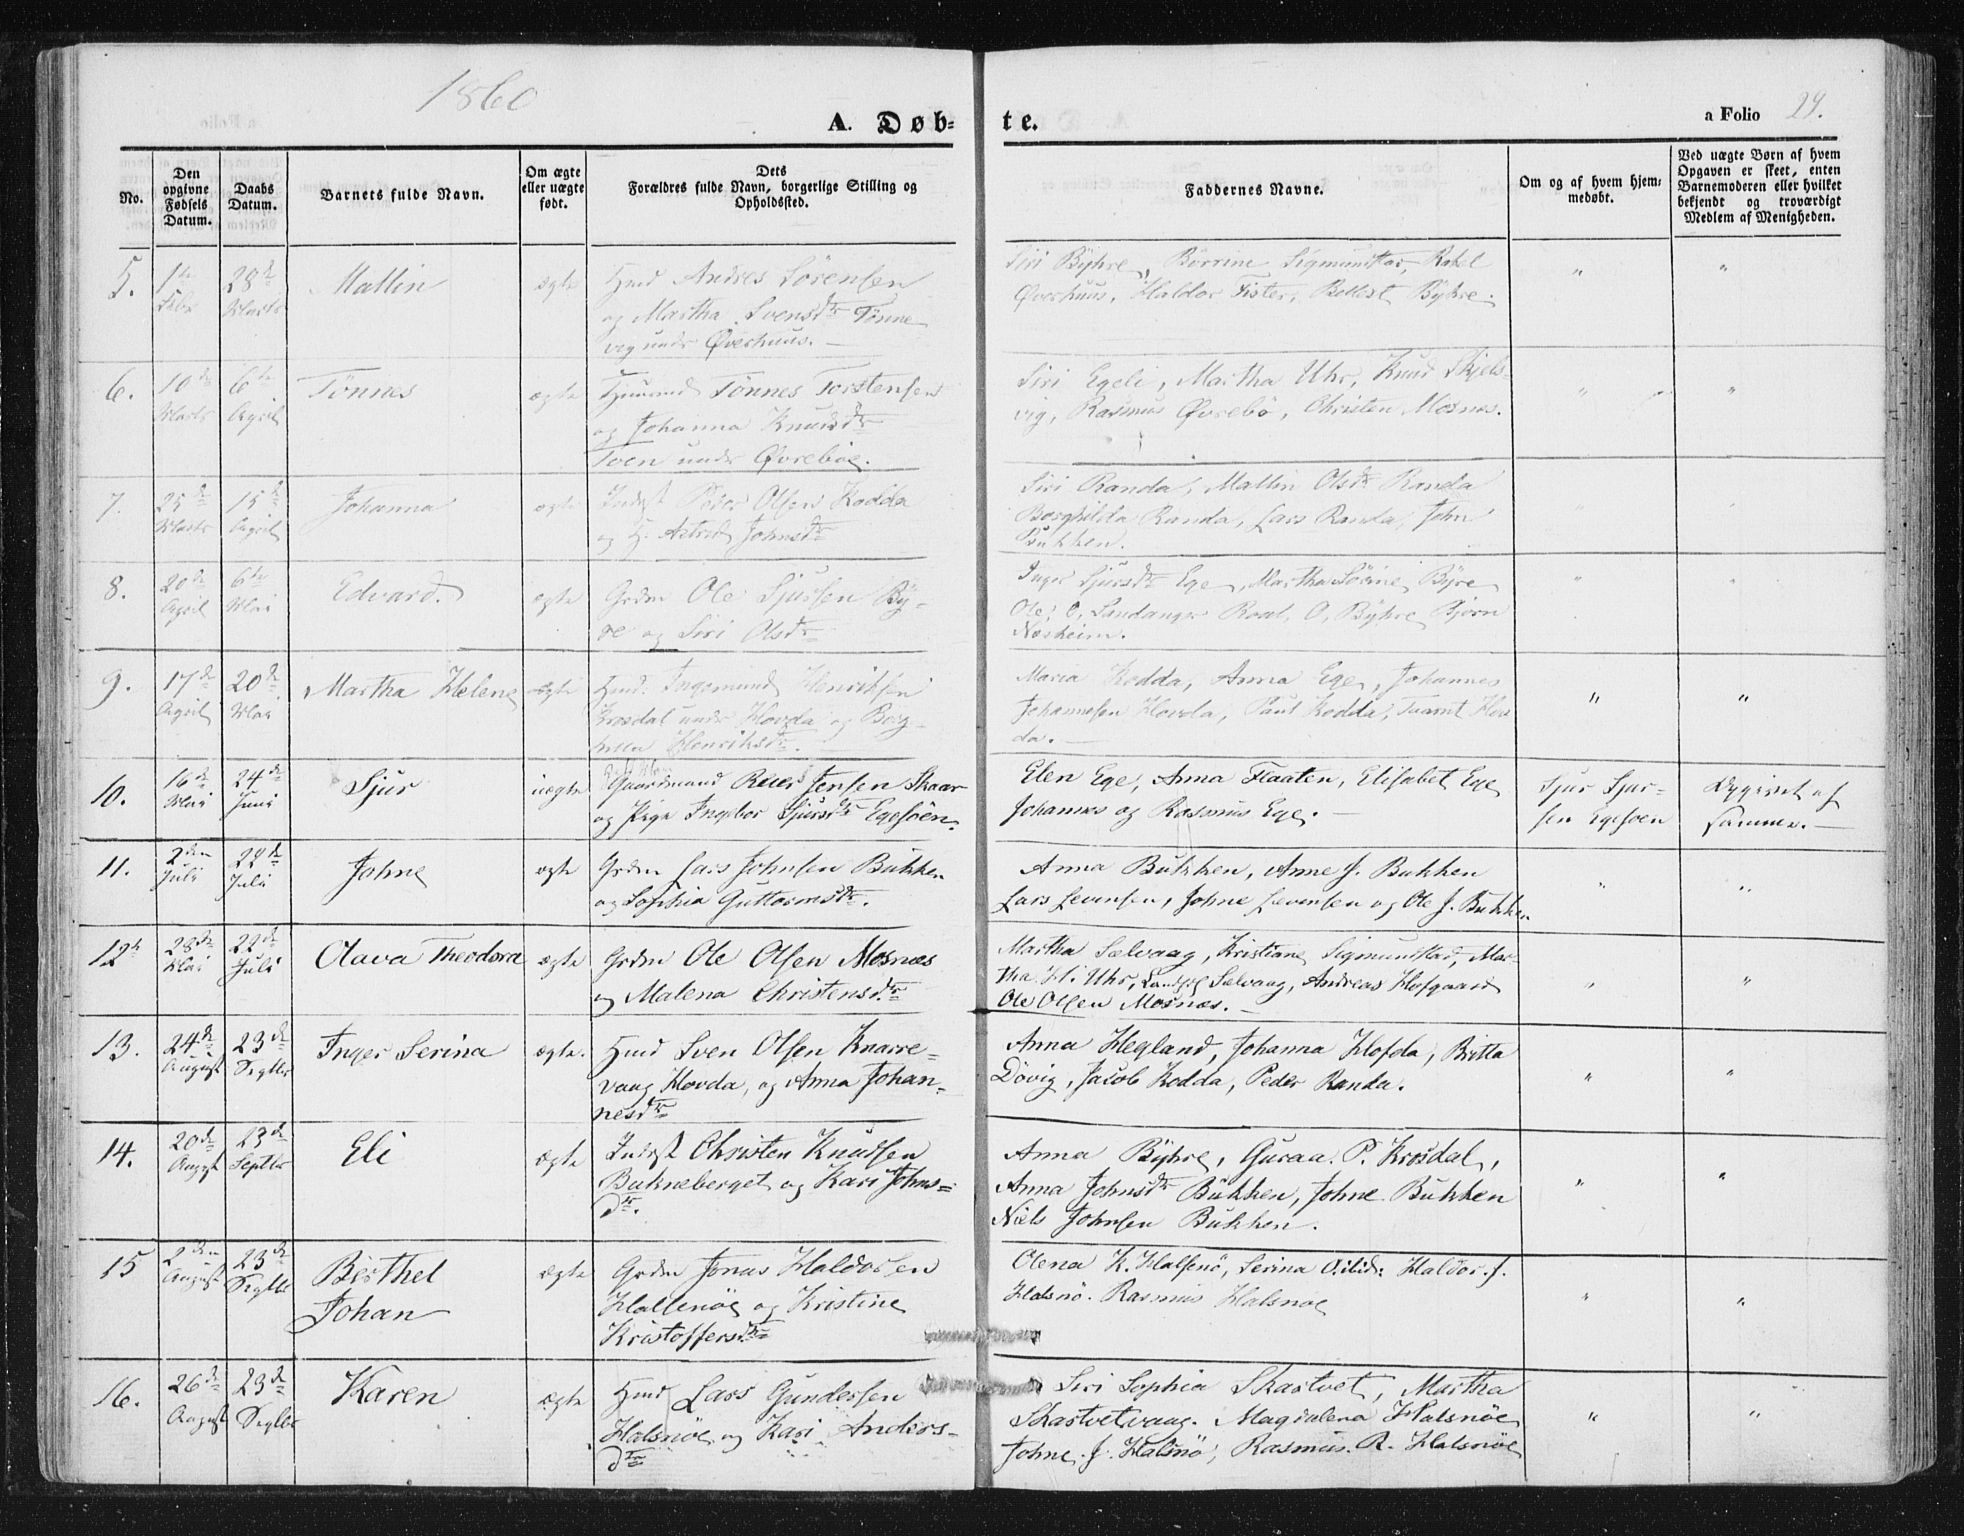 1860
A. Døb-
te.
a Folio 29.
No.
Den opgivne Fødsels Datum.
Daabs Datum.
Barnets fulde Navn.
Om ægte eller uægte født.
Dets
Forældres fulde Navn, borgerlige Stilling og
Opholdssted.
Faddernes Navne.
Om og af hvem hjem-
medøbt.
Ved uægte Børn af hvem
Opgaven er skeet, enten
Barnemoderen eller hvilket
bekjendt og troværdigt
Medlem af Menigheden.
5. 1ste Febr 28de Marts Mallin ægte
Hmd Andres Sörensen
og Martha Svensdtr Tønne
vig under Øverhuus.
Siri Byhre, Börrine Sigmunstad, Rakel
Øverhuus, Haldor Fister, Bottest Byhre.
" "
6. 10de Marts 6te April Tönnes ægte
Tönnes Torstensen
og Johanna Knudsdtr
Toen under Øvreböe.
Siri Egeli, Martha Uhr, Knud Skjels-
vig, Rasmus Øvrebö, Christen Mosnæs.
" "
7. 25de Marts 15de April Johanna ægte
Inderst Peder Olsen Kodda
og H. Astrid Johnsdtr
Siri Randa, Mallin Olsdtr Randa
Borghilda Randa, Lars Randa, John
Bukken.
8. 20de April 6te Mai Edvard. ægte
Grdm Ole Sjursen By-
re og Siri Olsdtr
Inger Sjursdtr Ege, Martha Sörine Byre
Ole O. Landanger Roal. O. Byhre Bjorn
Næsheim.
" "
9. 17de April 20de Mai Martha Helene ægte
Hmd. Ingemund Henriksen
Krosdal under Hovda og Borg-
hilla Henriksdtr.
Maria Kodda, Anna Ege, Johannes
Johannesen Hovda, Paul Kodda, Tvamt Hov
da.
" "
10. 16de Mai 24de Juni Sjur uægte
Gaardmand Reier Jensen Skaar
og Pige Ingebor Sjursdtr Egesöen.
Elen Ege, Anna Flaaten, Elisabet Ege
Johannes og Rasmus Ege.
Sjur Sjur-
sen Egesöen
Opgivet af
samme.
11. 2den Juli 22de Juli Johne ægte
Grdm Lars Johnsen Bukken
og Sophia Guttormsdtr.
Anna Bukken, Anne J. Bukken
Lars Levensen, Johne Levensen og Ole J. Bukken
" "
12te 28de Mai 22de Juli Olava Theodora ægte
Grdm Ole Olsen Mosnæs
og Malena Christensdtr
Martha Sælvaag, Kristiane Sigmunstad, Mar-
tha H. Uhr, Sælvaag, Andreas Hofgaard
Ole Olsen Mosnæs.
" "
13. 24de August 23de Septbr Inger Serina ægte.
Hmd Sven Olsen Knarre-
vaag Hovda, og Anna Johan-
nesdtr
Anna Hegland, Johanna Hofda, Britta
Dövig, Jacob Kodda, Peder Randa.
" "
14. 20de August 23de Septbr Eli ægte
Inderst Christen Knudsen
Bukneberget og Kari Johns-
dtr.
Anna Byhre, Guraa. P. Krosdal,
Anna Johnsdtr Bukken, Johne Bukken
Niels Johnsen Bukken.
" "
15 2den August 23de Septbr Berthel
Johan ægte
Grdm Jonas Haldorsen
Halsenöe og Kristine
Kristoffersdtr
Olena K. Halsenö, Serina Haldor. J.
Halsnö. Rasmus Halsnoe
" "
16. 26de August 23de Septbr Karen ægte
Hmd Lars Gundersen
Halsnöe og Kari Anders-
dtr
Siri Sophia Skastvet, Martha
Skastvetvaag. Magdalena Halsnöe
Johne. J. Halsnö, Rasmus. R. Halsnöe
" "